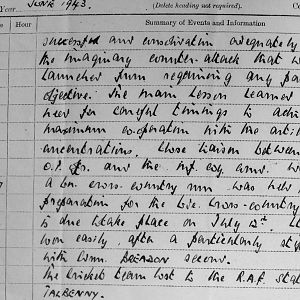 Year JUNE 1943.
Hour Summary of Events and Information
(Delete heading not required).
successful and consolidation adequately
the imaginary counter-attack that w
launched from regaining any pa
objective. The main lesson learned
need for careful timings to achi
maximum co-operation with the arti
concentrations. Close liaison between
O.P. Offrs. and the inf coy comd. w
a bn. cross-country run was held
preparation for the Bde. Cross-country
is due to take place on July 12th.
won easily, after a particularly st
with Comn. second.
The Cricket team lost to the R.A.F. stat
TALBENNY.